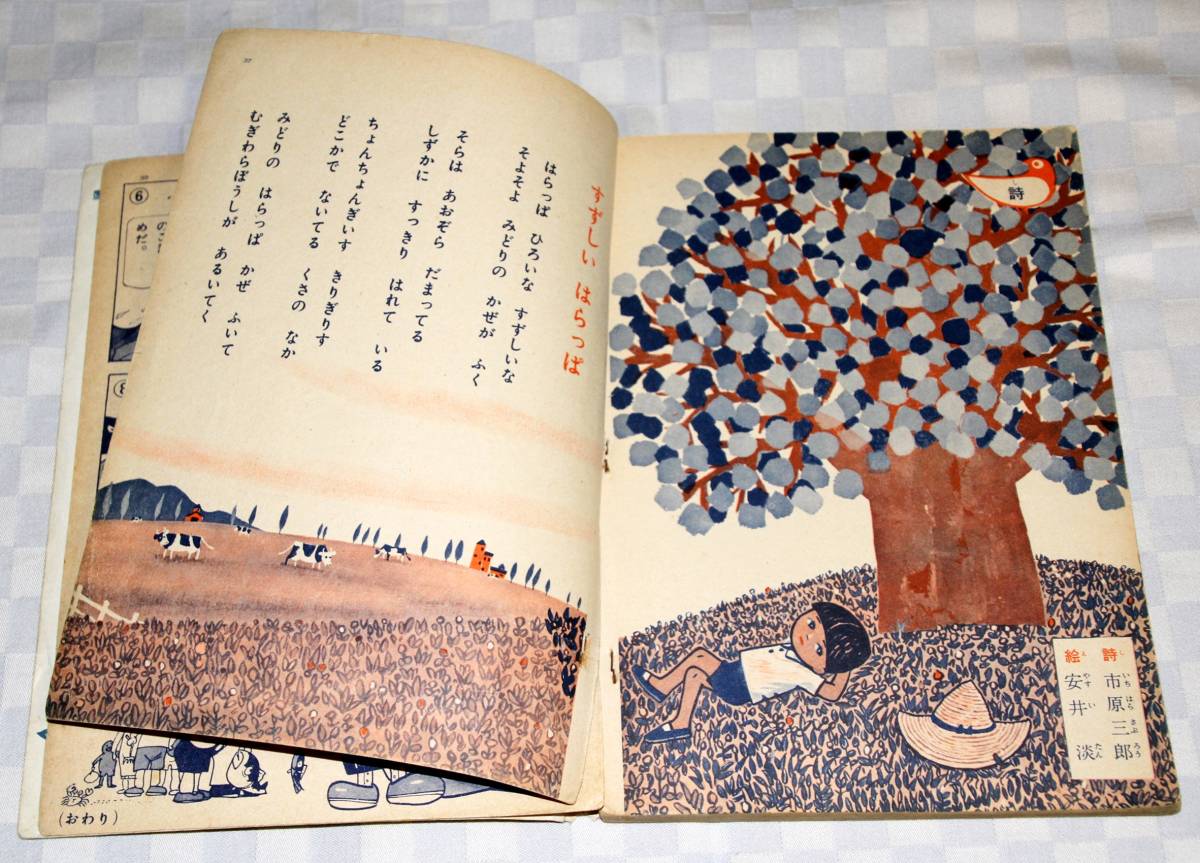 詩
すずしい はらっぱ
はらっぱ ひろいな すずしいな
そよそよ みどりの かぜが ふく
そらは あおぞら だまってる
しずかに すっきり はれて いる
ちょんちょんぎいす きりぎりす
どこかで ないてる くさの なか
みどりの はらっぱ かぜ ふいて
むぎわらぼうしが あるいてく
詩 市原三郎
絵 安井 淡
し いち はら さぶ ろう
え やす い たん
37
⑥
めだ。
⑧
(おわり)